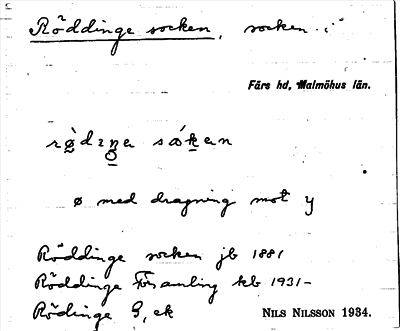 Röddinge socken, socken i
Färs hd, Malmöhus län.
rø̀dıŋa sǿkan
ø med dragning mot y
Röddinge socken jb 1881
Röddinge Församling kb 1931-
Rödinge G, ek
NILS NILSSON 1934.